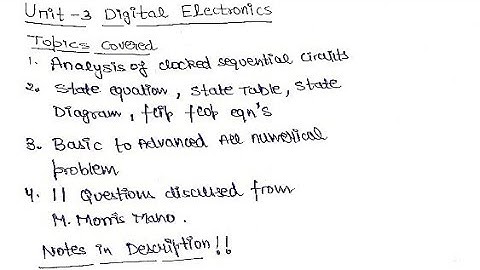 Unit -3 Digital Electronics
Topics covered
1. Analysis of clocked sequential circuits
2. State equation, State Table, State
Diagram, flip flop eqn's
3. Basic to Advanced All numerical
problem
4. 11 Questions discussed from
M. Morris Mano.
Notes in Description!!